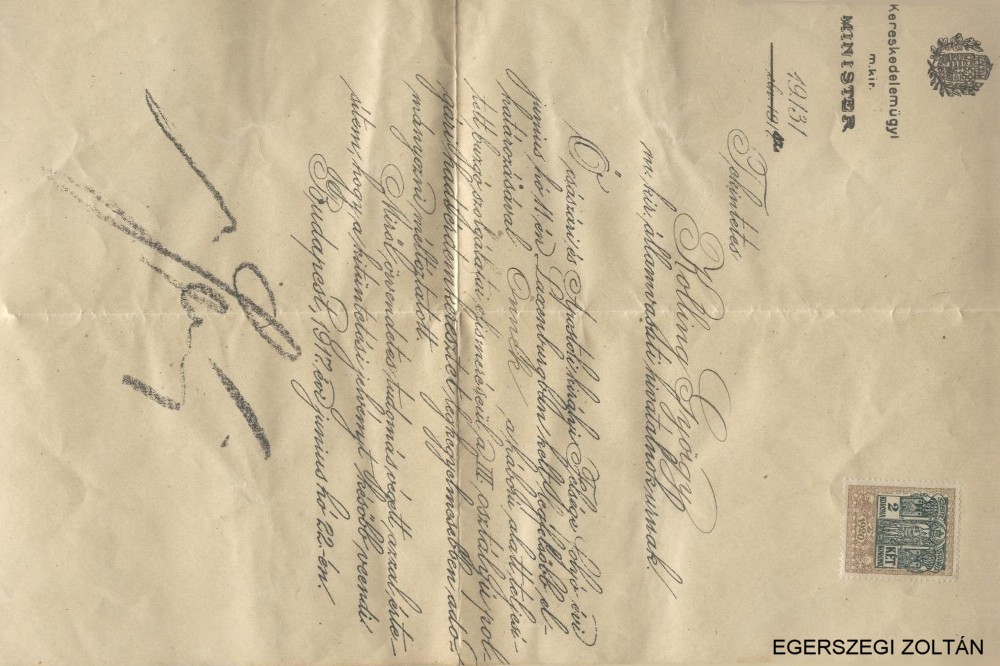 Kereskedelemügyi
m.kir.
MINISTER
19131
Tekintetes
Kolling György
m. kir. államvasúti hivatalnokurnak!
Ő császári és Apostoli királyi Felsége f. évi
junius hó 11.-én Laxenburgban kelt legfelsőbb el-
határozásával Önnek, a háború alatt teljesí-
tett buzgó szolgálatai elismeréseül a III. osztályú pol-
gári hadiérdemkeresztet legkegyelmesebben ado-
mányozni méltóztatott.
Miről örvendetes tudomás végett azzal érte-
sítem, hogy a kitüntetési jelvényt később veendi.
Budapest, 1917. évi junius hó 22-én.
2 KORONA
1920
KÉT KORONA
EGERSZEGI ZOLTÁN